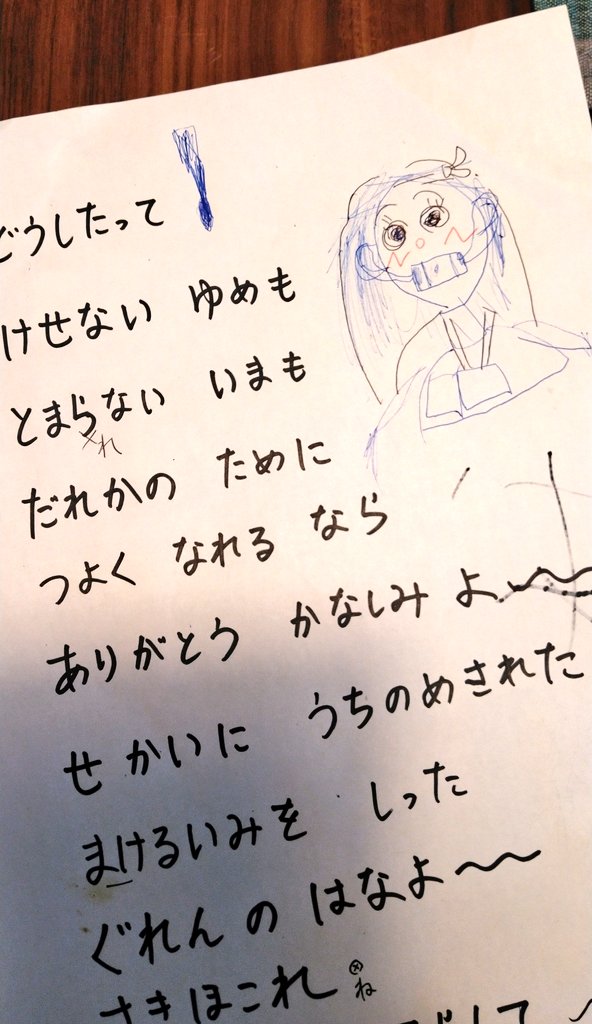 どうしたって
けせない ゆめも
とまらない いまも
れ
だれかの ために
つよく なれる なら
ありがとう かなしみ よ〜
せかいに うちのめされた
まけるいみを しった
ぐれん の はなよ〜〜
さきほこれ ね
して